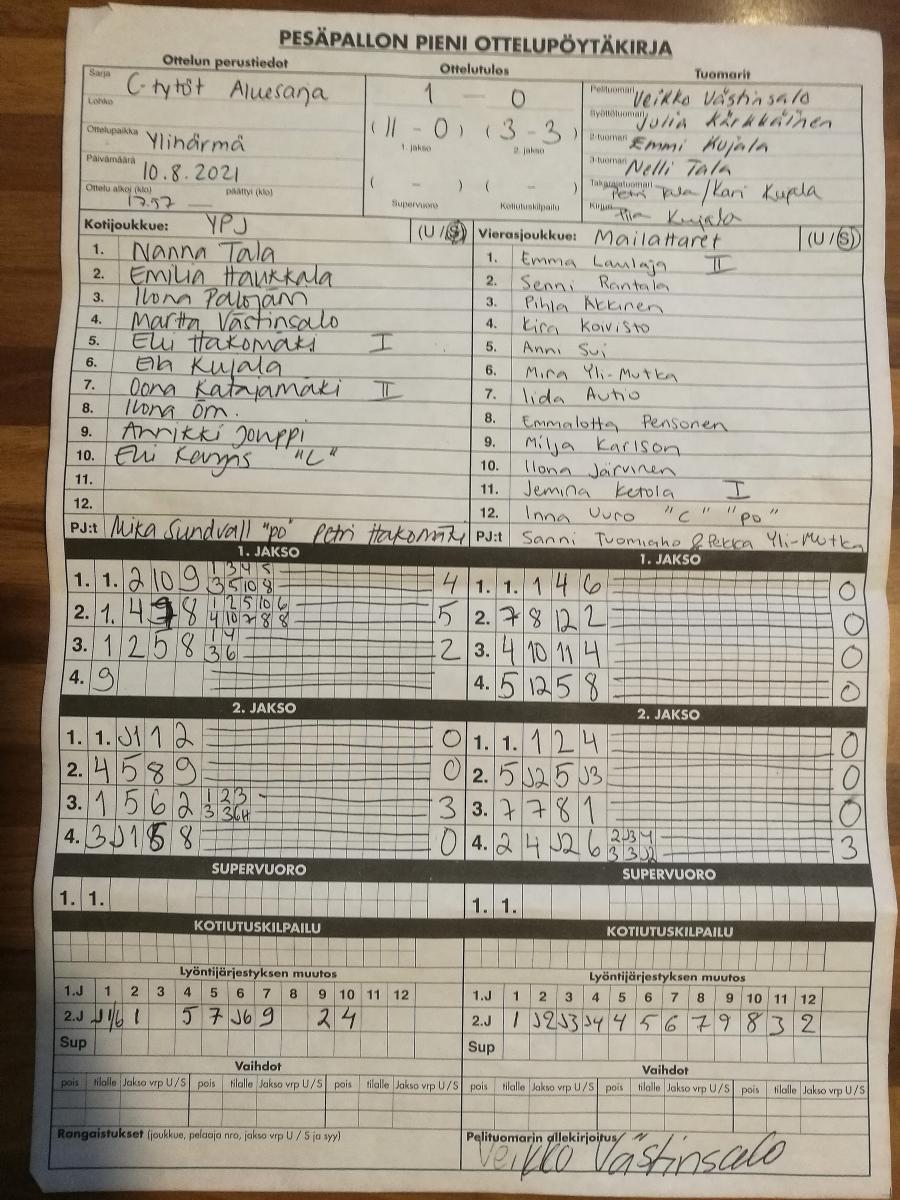 PESÄPALLON PIENI OTTELUPÖYTÄKIRJA
Ottelun perustiedot
Ottelutulos
Tuomarit
Sarja C-tytöt Aluesarja
Lohko
Ottelupaikka Ylihärmä
Päivämäärä 10.8.2021
Ottelu alkoi (klo) 17.57 päättyi (klo) —
1 — 0
(11 - 0) (3 - 3)
1. jakso 2. jakso
( - ) ( - )
Supervuoro Kotiutuskilpailu
Pelituomari Veikko Västinsalo
Syöttötuomari Julia Kärkkäinen
2-tuomari Emmi Kujala
3-tuomari Nelli Tala
Takarajatuomari Petri Tala/Kari Kujala
Kirjuri Kujala
Kotijoukkue: YPJ (U / S)
1. Nanna Tala
2. Emilia Haukkala
3. Ilona
4. Martta Västinsalo
5. Elli Hakomäki I
6. Kujala
7. Oona Katajamäki II
8. Ilona
9. Annikki Jouppi
10. Elli "C"
11.
12.
PJ:t Mika Sundvall "po" Petri Hakomäki
Vierasjoukkue: Mailattaret (U / S)
1. Emma Laulaja II
2. Senni Rantala
3. Pihla Akkinen
4. Kira Koivisto
5. Anni Sui
6. Mira Yli-Mutka
7. Iida Autio
8. Emmalotta Pensonen
9. Milja Karlson
10. Ilona Järvinen
11. Jemina Ketola I
12. Inna Uuro "C" "po"
PJ:t Sanni Tuomiaho & Pekka Yli-Mutka
1. JAKSO
1. 1. 2 10 9 1 3 4 5 4
3 5 10 8
2. 1. 4 8 1 2 5 10 6 5
4 10 7 8 8
3. 1 2 5 8 1 4 2
3 6
4. 9
1. JAKSO
1. 1. 1 4 6 0
2. 7 8 12 2 0
3. 4 10 11 4 0
4. 5 12 5 8 0
2. JAKSO
1. 1. J1 1 2 0
2. 4 5 8 9 0
3. 1 5 6 2 1 2 3 3
3 3 6
4. 3 J1 8 0
2. JAKSO
1. 1. 1 2 4 0
2. 5 J2 5 J3 0
3. 7 7 8 1 0
4. 2 4 J2 6 2 J3 4 3
3 3 J2
SUPERVUORO
1. 1.
SUPERVUORO
1. 1.
KOTIUTUSKILPAILU
KOTIUTUSKILPAILU
Lyöntijärjestyksen muutos
1.J 1 2 3 4 5 6 7 8 9 10 11 12
2.J J1/6 1 5 7 J6 9 2 4
Sup
Lyöntijärjestyksen muutos
1.J 1 2 3 4 5 6 7 8 9 10 11 12
2.J 1 J2 J3 J4 4 5 6 7 9 8 3 2
Sup
Vaihdot
pois tilalle Jakso vrp U / S pois tilalle Jakso vrp U / S pois tilalle Jakso vrp U / S
Vaihdot
pois tilalle Jakso vrp U / S pois tilalle Jakso vrp U / S pois tilalle Jakso vrp U / S
Rangaistukset (joukkue, pelaaja nro, jakso vrp U / S ja syy)
Pelituomarin allekirjoitus
Veikko Västinsalo